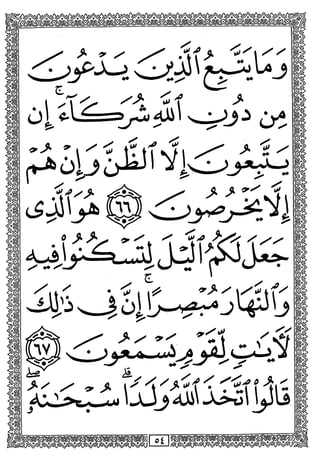 وَمَا يَتَّبِعُ ٱلَّذِينَ يَدْعُونَ
مِن دُونِ ٱللَّهِ شُرَكَآءَ ۚ إِن
يَتَّبِعُونَ إِلَّا ٱلظَّنَّ وَإِنْ هُمْ
إِلَّا يَخْرُصُونَ ٦٦ هُوَ ٱلَّذِى
جَعَلَ لَكُمُ ٱلَّيْلَ لِتَسْكُنُوا۟ فِيهِ
وَٱلنَّهَارَ مُبْصِرًا ۚ إِنَّ فِى ذَٰلِكَ
لَـَٔايَـٰتٍ لِّقَوْمٍ يَسْمَعُونَ ٦٧
قَالُوا۟ ٱتَّخَذَ ٱللَّهُ وَلَدًا ۗ سُبْحَـٰنَهُۥ ۖ
٥٤